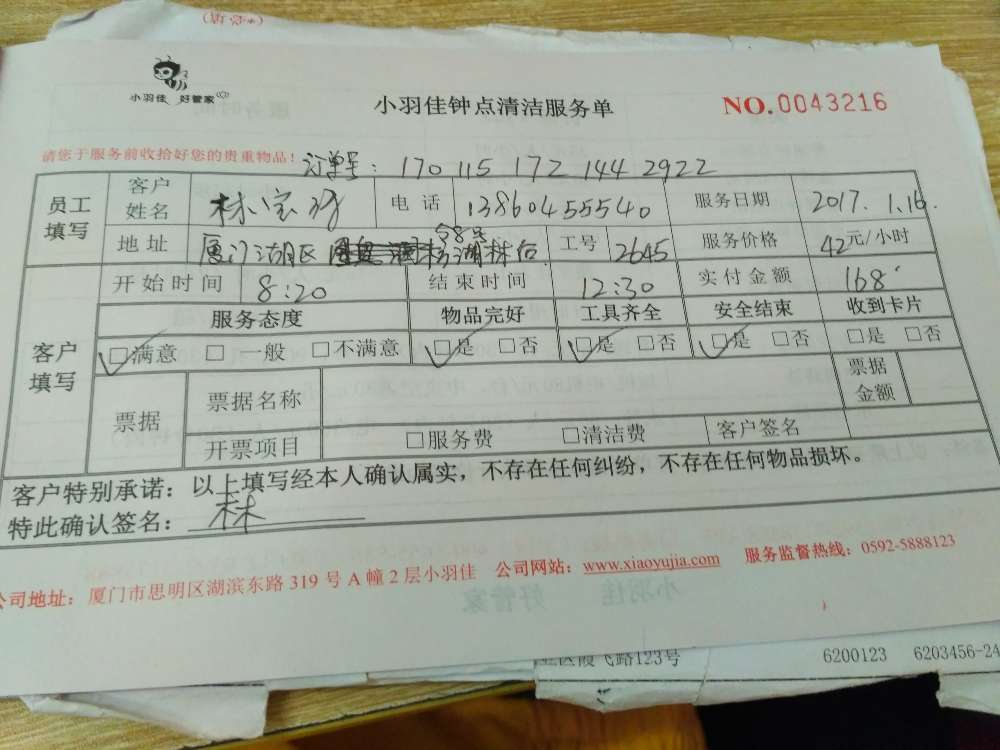 小羽佳 好管家
小羽佳钟点清洁服务单
NO.0043216
请您于服务前收拾好您的贵重物品！
订单号：170 115 172 144 2922
员工填写
客户姓名 林宝 电话 13860455540 服务日期 2017.1.16.
地址 厦门湖区 湖林 工号 2645 服务价格 42元/小时
客户填写
开始时间 8:20 结束时间 12:30 实付金额 168
服务态度 物品完好 工具齐全 安全结束 收到卡片
☑满意 □一般 □不满意 ☑是 □否 ☑是 □否 ☑是 □否 □是 □否
票据 票据名称 票据金额
开票项目 □服务费 □清洁费 客户签名
客户特别承诺：以上填写经本人确认属实，不存在任何纠纷，不存在任何物品损坏。
特此确认签名：林
公司地址：厦门市思明区湖滨东路 319 号 A 幢 2 层小羽佳 公司网站：www.xiaoyujia.com 服务监督热线：0592-5888123
区霞飞路123号 6200123 6203456-24